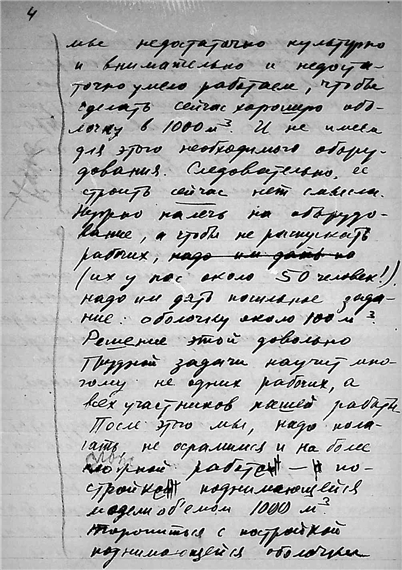 4
мы недостаточно культурно
и внимательно и недоста-
точно умело работаем, чтобы
сделать сейчас хорошую обо-
лочку в 1000 м³. И не имеем
для этого необходимого обору-
дования. Следовательно, ее
строить сейчас нет смысла.
Нужно налечь на оборудо-
вание, а чтобы не распускать
рабочих, надо им дать по
(их у нас около 50 человек!)
надо им дать посильное зада-
ние: оболочку около 100 м³.
Решение этой довольно
трудной задачи научит мно-
гому не одних рабочих, а
всех участников нашей работы.
После этого мы, надо пола-
гать, не осрамимся и на более
работе — по-
стройке поднимающейся
модели объемом 1000 м³.
Торопиться с постройкой
поднимающейся оболочки